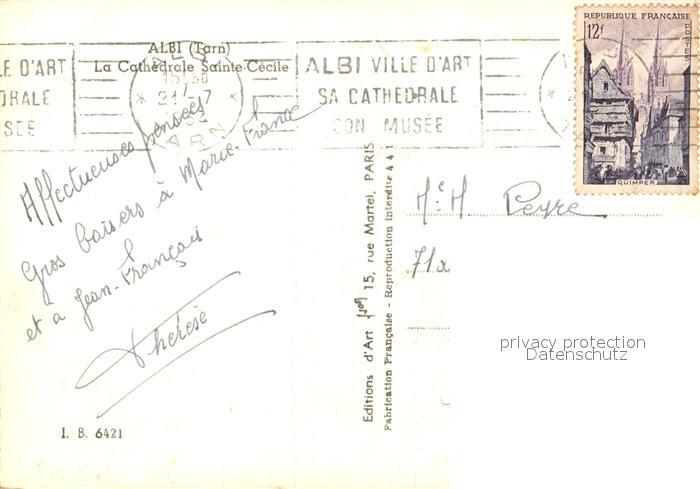 ALBI (Tarn)
La Cathédrale Sainte-Cécile
LE D'ART
DRALE
SEE
ALBI VILLE D'ART
SA CATHEDRALE
SON MUSÉE
TARN
REPUBLIQUE FRANÇAISE
12f
QUIMPER
Affectueuses pensées
Gros baisers à Marie-France
et à Jean-François
Thérèse
I. B. 6421
Editions d'Art Yvon 15, rue Martel, PARIS
Fabrication Française - Reproduction interdite 441
Peyre
privacy protection
Datenschutz